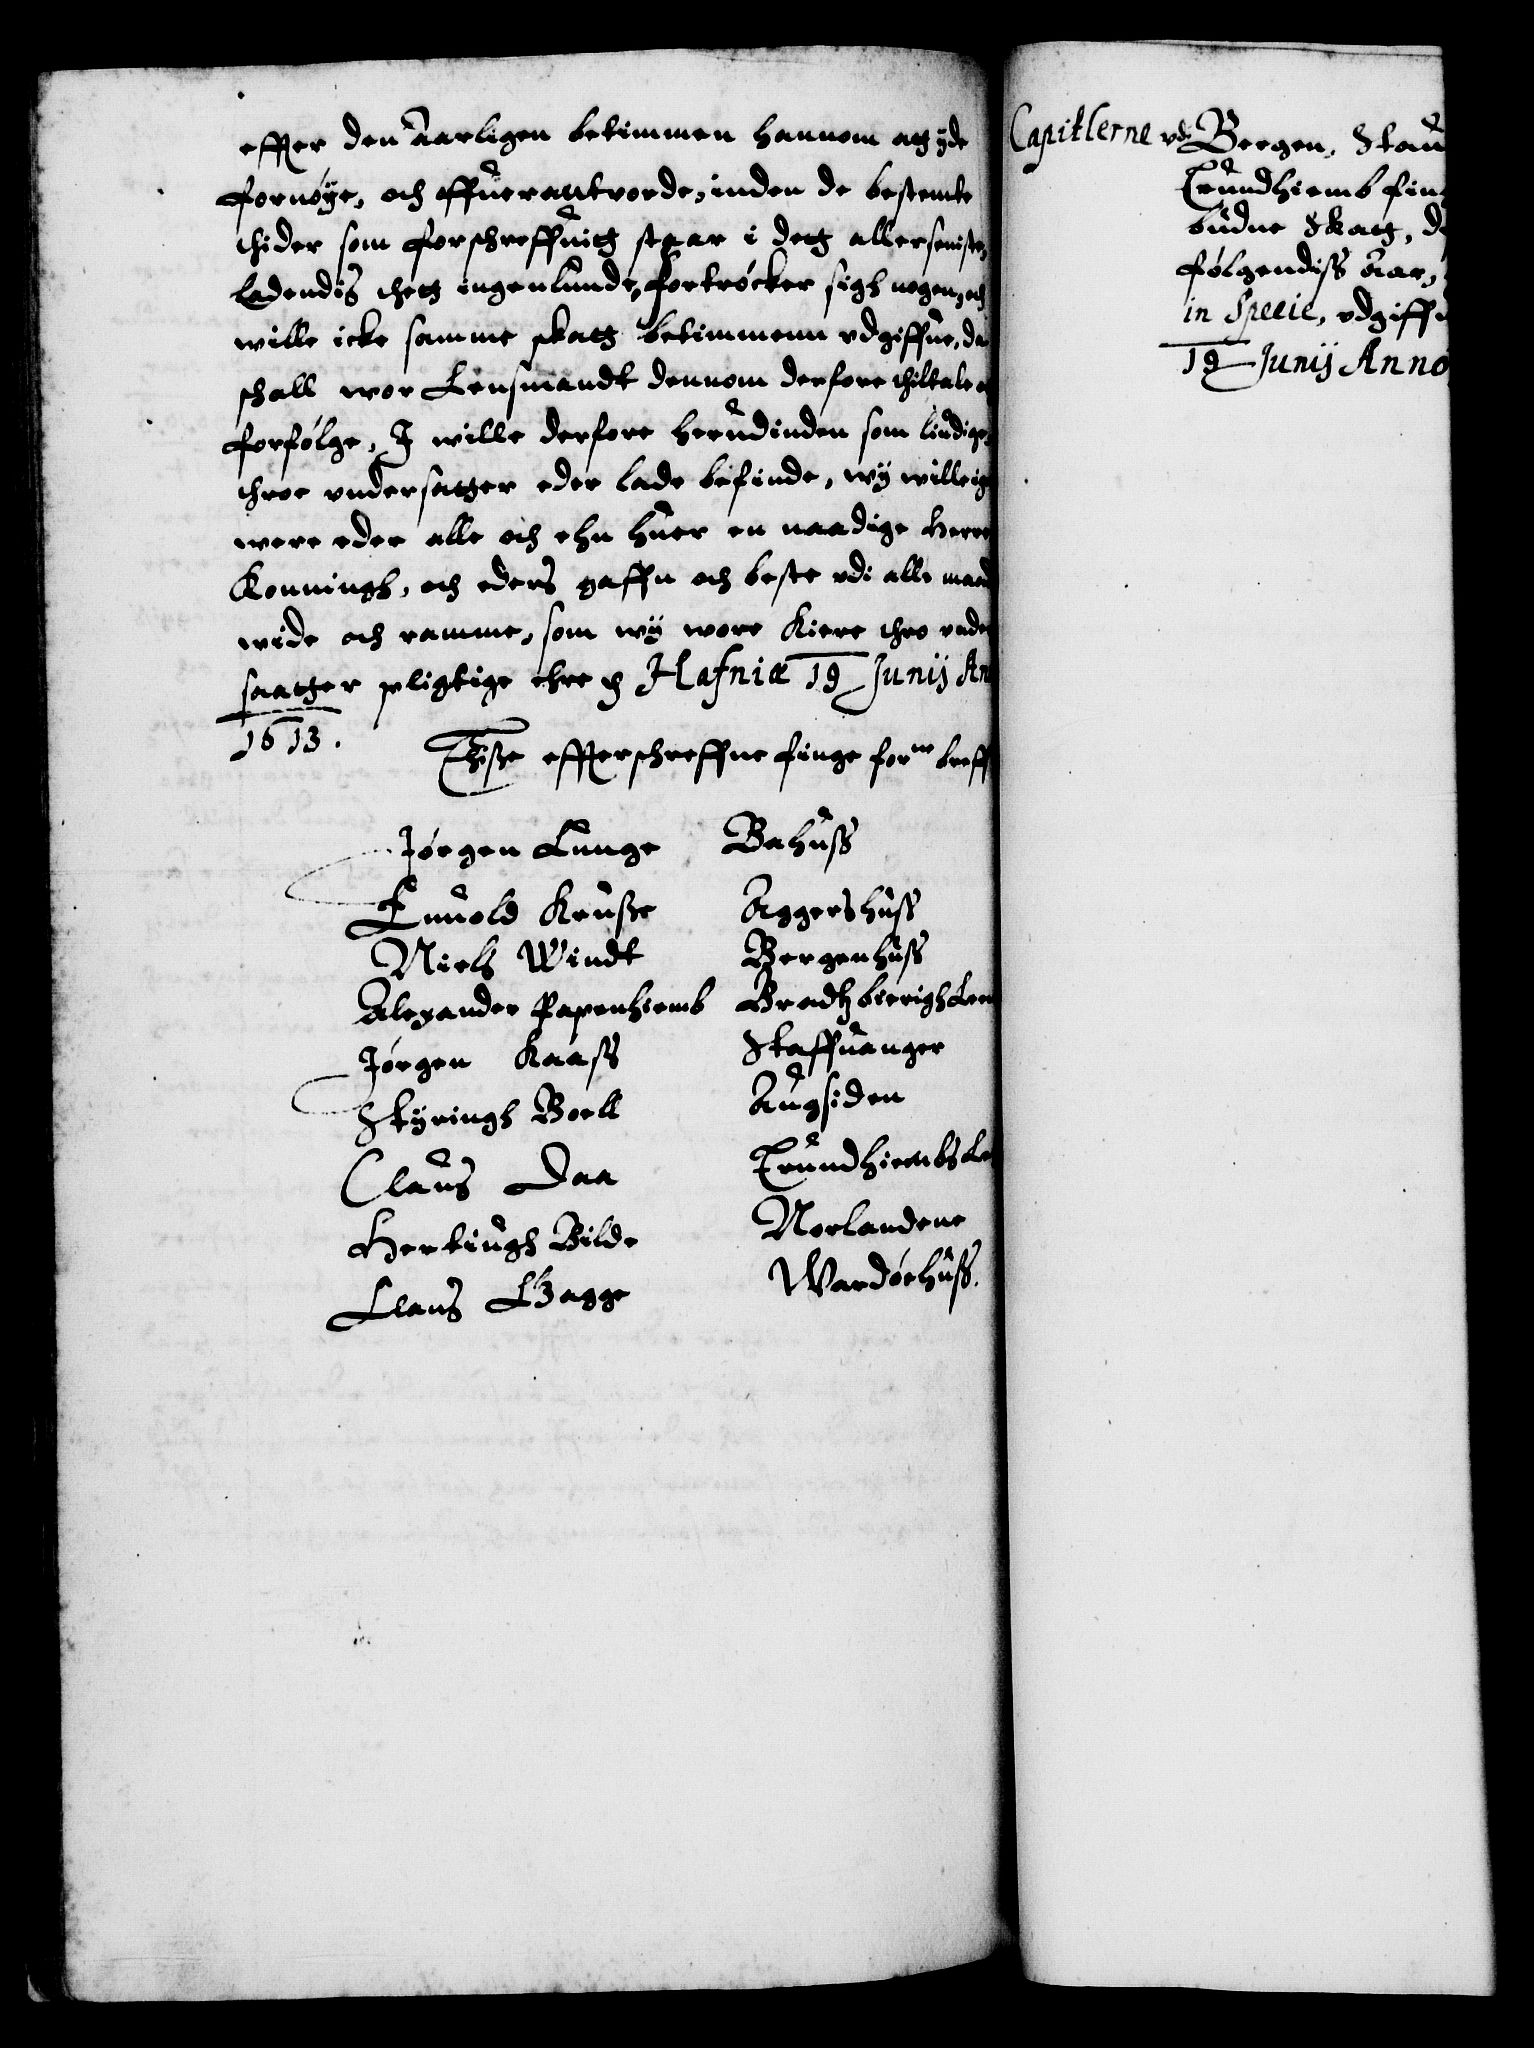 effter den aarligen betimmen hannom att yde
fornøye, och offuerantvorde, inden de bestemte
thider som forschreffuitt staar i dett allerseniste,
Ladendis thett ingenlunde, fortrøcker sigh nogen, och
wille icke samme skatt betimmenn vdgiffue, da
schall wor Lensmandt dennom derfore thiltale
forfølge, I wille derfore herudinden som lindige
throe vndersatter eder lade befinde, wij willeig
were eder alle och ehn huer en naadige Herre
Konningh, och eders gaffn och beste vdi alle maad
wide och ramme, som wij wore Kiere thro vnder
saatter pligtige ehre Hafniæ 19 Junij An
1613.
Thisse effterschreffne finge forne breff
Jørgen Lunge Bahuss
Enuold Krusse Aggershuss
Niels Windt Bergenhuss
Alexander Papenhiemb Bradtzbierigh Len
Jørgen Kaass Staffuanger
Styringh Boell Augsiden
Claus Daa Trundhiembs Le
Hertiugh Bilde Norlandene
Claus Gagge Wardøehuss.
Capitlerne vdi Bergen, Stau
Trundhiemb fin
budne Skatt, d
følgendiss aar,
in Specie, vdgiffu
19 Junij Anno